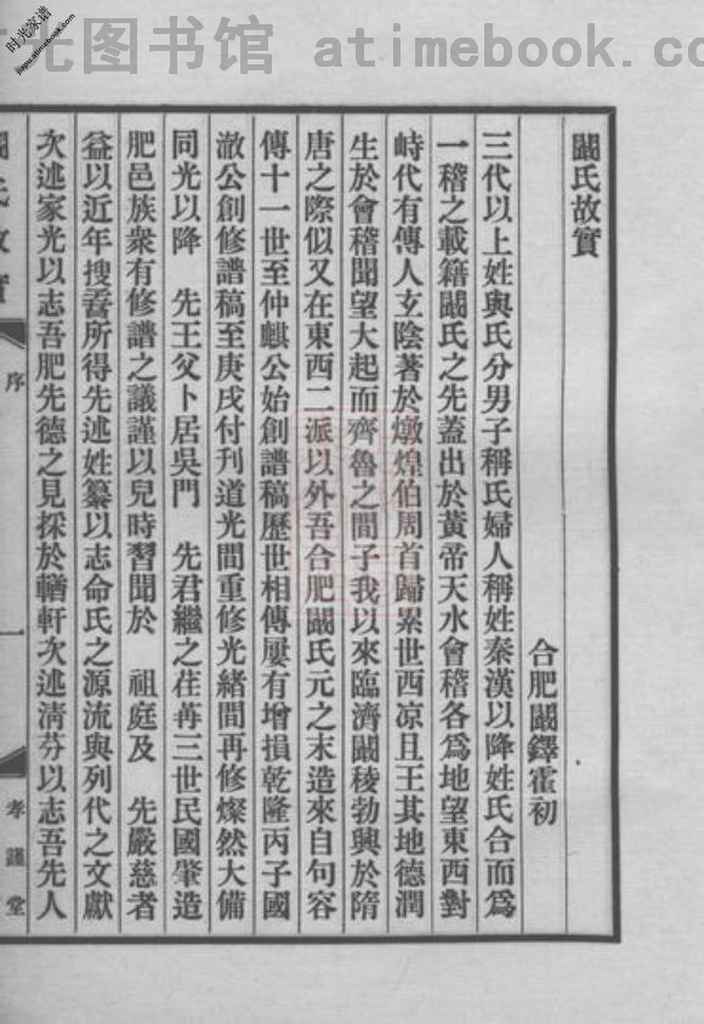 时光家谱
jiapu.atimebook.com
光图书馆 atimebook.co
闞氏故實
合肥闞鐸霍初
三代以上姓與氏分男子稱氏婦人稱姓秦漢以降姓氏合而爲
一稽之載籍闞氏之先蓋出於黃帝天水會稽各爲地望東西對
峙代有傳人玄陰著於燉煌伯周首歸累世西凉且王其地德潤
生於會稽聞望大起而齊魯之間子我以來臨濟闞稜勃興於隋
唐之際似又在東西二派以外吾合肥闞氏元之末造來自句容
傳十一世至仲麒公始創譜稿歷世相傳屢有增損乾隆丙子國
澈公創修譜稿至庚戌付刊道光間重修光緒間再修燦然大備
同光以降 先王父卜居吳門 先君繼之荏苒三世民國肇造
肥邑族衆有修譜之議謹以兒時習聞於 祖庭及 先嚴慈者
益以近年搜討所得先述姓纂以志命氏之源流與列代之文獻
次述家光以志吾肥先德之見採於輶軒次述清芬以志吾先人
闞氏故實
序
一
孝謹堂